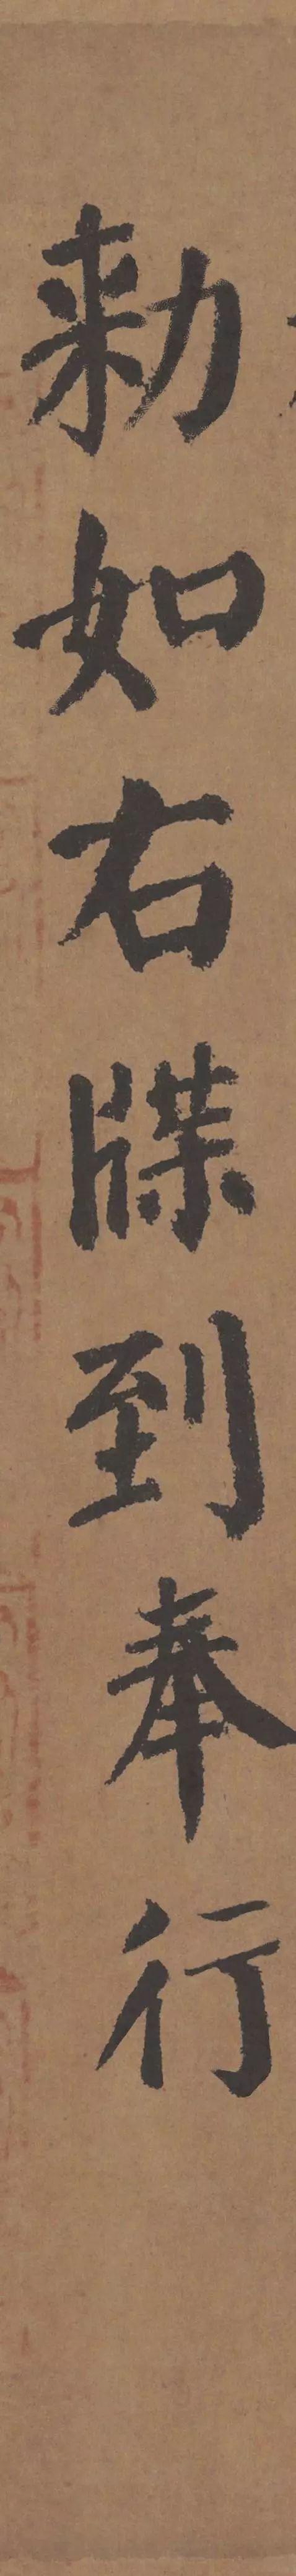 勑如右牒到奉行